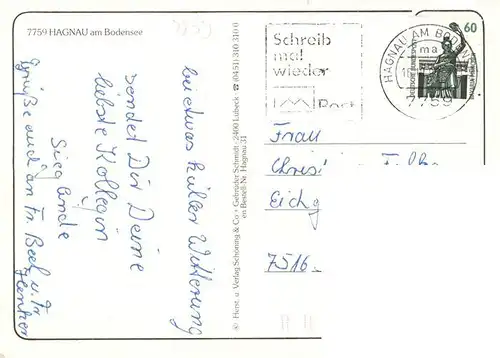 7759 HAGNAU am Bodensee
bei etwas kühler Witterung
sendet Dir Deine
liebste Kollegin
Sieglinde
Grüße auch an Fr. Beck u. Fr.
© Herst. u. Verlag Schöning & Co · Gebrüder Schmidt · 2400 Lübeck ☎ (0451) 310 310 0
en Bestell-Nr. Hagnau 31
Schreib
mal
wieder
Post
HAGNAU AM BODEN
ma
7759
60
DEUTSCHE BUNDESPOST
Frau
Christ
Eich
7516